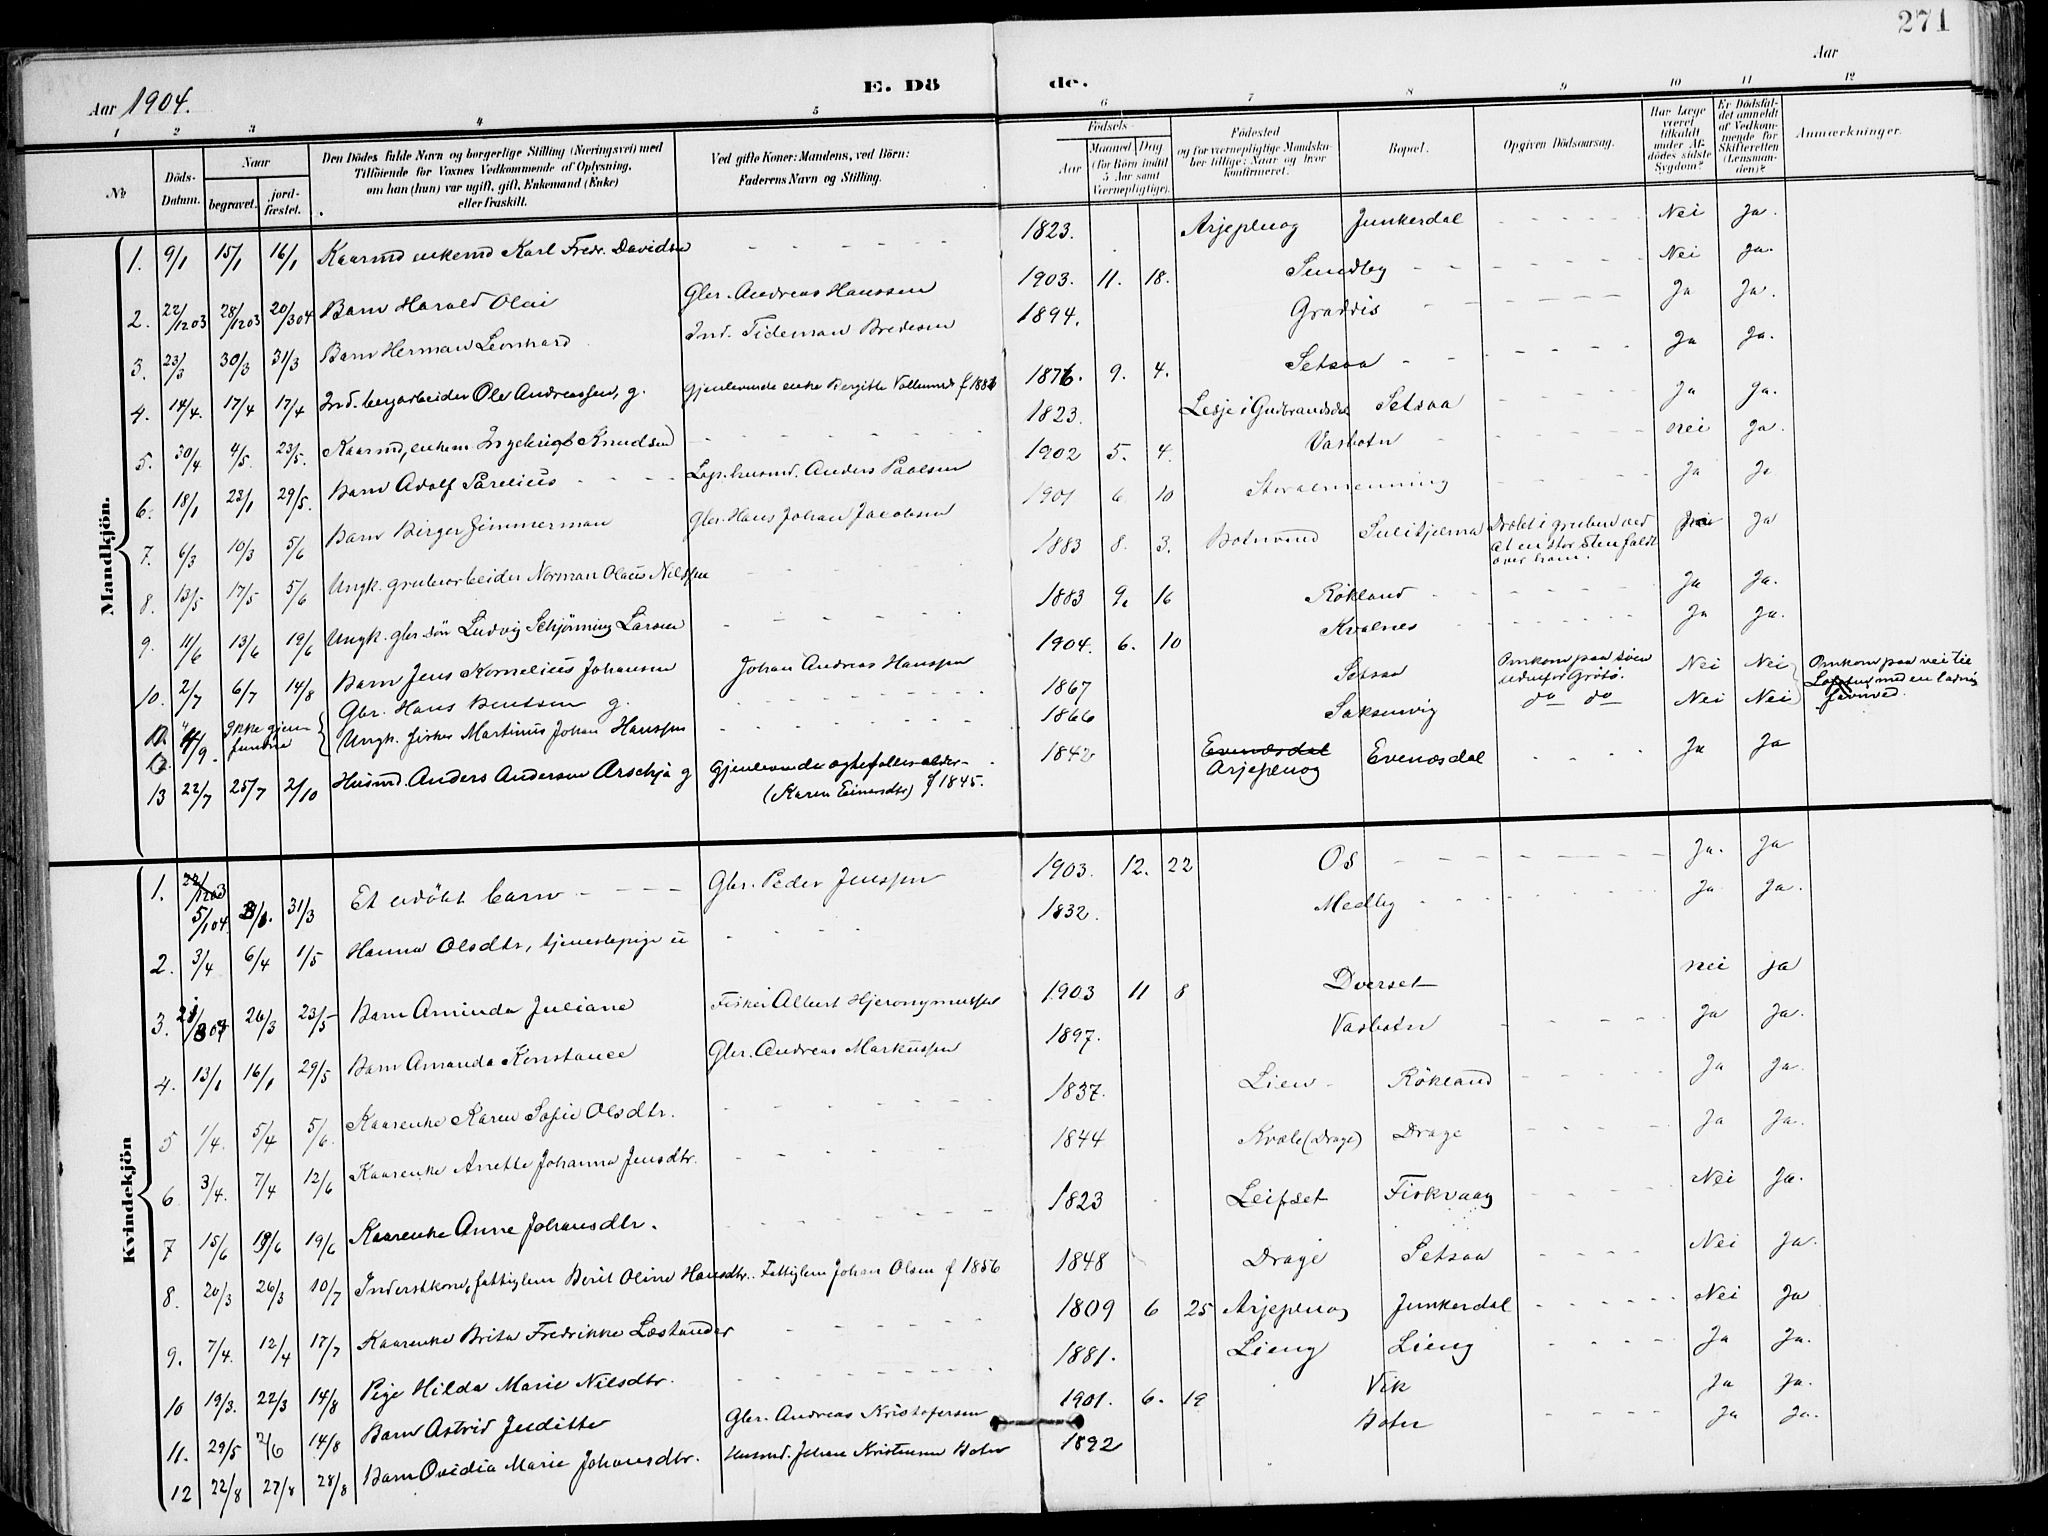 271
Aar 1904.
E. Dö
de.
Aar
1 2 3 4 5 6 7 8 9 10 11 12
No
Döds-Datum.
Naar
begravet.
jord-fæstet.
Den Dödes fulde Navn og borgerlige Stilling (Næringsvei) med
Tilföiende for Voxnes Vedkommende af Oplysning,
om han (hun) var ugift, gift, Enkemand (Enke)
eller fraskilt.
Ved gifte Koner: Mandens, ved Börn:
Faderens Navn og Stilling.
Födsels-
Aar
Maaned
Dag
(for Börn indtil
5 Aar samt
Værnepligtige).
Födested
og for værnepligtige Mandska-
ber tillige: Naar og hvor
konfirmeret.
Bopæl.
Opgiven Dödsaarsag.
Har Læge
været
tilkaldt
under Af-
dödes sidste
Sygdom?
Er Dödsfal-
det anmeldt
af Vedkom-
mende for
Skifteretten
(Lensman-
den)?
Anmærkninger.
Mandkjön.
1. 9/1 15/1 16/1 Kaarmd enkemd Karl Fredr. Davidsen 1823. Arjepluog Junkerdal Nei Ja.
2. 22/1203 28/1203 20/304 Barn Harald Olai Gbr. Andreas Hanssen 1903. 11. 18. Sundby Nei Ja.
3. 23/3 30/3 31/3 Barn Herman Leonhard Ind. Tideman Bredesen 1894. Graddis Ja Ja.
4. 14/4. 17/4 17/4 Ind. bergarbeider Ole Andreassen, g. Gjenlevende enke Bergitte 1876. 9. 4. Setsaa Ja Ja.
5. 30/4 4/5. 23/5. Kaarmd, enkem Ingebrigt Knudsen 1823. Lesje i Gudbrandsdal Setsaa Ja Ja.
6. 18/1 22/1 29/5. Barn Adolf Parelius Lap. husmd. Anders Paalsen 1902 5. 4. Vasbotn nei Ja.
7. 6/3 10/3 5/6 Barn Birger Zimmerman Gbr. Hans Johan Jacobsen 1901 6 10 Storalmenning Ja Ja
8. 13/5 17/5 5/6 Ungk. grubearbeider Norman Olaus Nilssen 1883 8. 3. Botnvand Sulitjelma Dræbt i gruben ved
at en stor sten faldt
over ham. Ja
9. 11/6 13/6 19/6 Ungk. gbr. søn Ludvig Schjønning Larsen 1883 9. 16 Røkland Ja Ja.
10. 2/7 6/7 14/8 Barn Jens Kornelius Johansen Johan Andreas Hanssen 1904. 6. 10 Kvalnes Ja Ja.
11. 4/9. Ikke gjen-
fundne Gbr. Hans Bentsen g. 1867 Setsaa Omkom paa søen
udenfor Grøtø. Nei Nei Omkom paa vei til
Lofoten med en ladning
12. Ungk. fisker Martinus Johan Hanssen 1866 Saksenvig do do Nei Nei
13 22/7 25/7 2/10 Husmd. Anders Andersen Arsekja g Gjenlevende ægtefælles alder
(Karen Einarsdtr) f 1845. 1842 Evenæsdal
Arjepluog Evenæsdal Ja Ja
Kvindekjön
1. 22/1203
5/104. 31/3 Et udøbt barn Gbr. Peder Jenssen 1903. 12. 22 Os Ja. Ja
2. 3/4 6/4 1/5 Hanna Olsdtr, tjenestepige u 1832. Medby Ja Ja.
3. 26/3 23/5 Barn Aminda Juliane Fisker Albert Hjeronymussen 1903 11 8 Dverset nei ja
4. 13/1 16/1 29/5 Barn Amanda Konstance Gbr. Andreas Markussen 1897. Vasbotn Ja Ja.
5 1/4. 5/4 5/6. Kaarenke Karen Sofie Olsdtr. 1837. Lien Røkland Ja Ja.
6 3/4. 7/4 12/6 Kaarenke Anette Johanna Jensdtr. 1844 Kvæle (Drage) Drage Ja Ja.
7 15/6 19/6 19/6 Kaarenke Anne Johansdtr. 1823 Leifset Fiskvaag Nei Ja.
8. 20/3 26/3 10/7 Inderstkone, fattiglem Berit Oline Hansdtr. Fattiglem Johan Olsen f 1856 1848 Drage Setsaa Nei Ja.
9. 7/4. 12/4 17/7 Kaarenke Brita Fredrikke Læstander 1809 6 25 Arjepluog Junkerdal Nei Ja
10 19/3. 22/3 14/8 Pige Hilda Marie Nilsdtr. 1881. Lieng Lieng Ja Ja.
11. 29/5 2/6 14/8 Barn Astrid Juditte Gbr. Andreas Kristofersen 1901. 6. 19 Vik Ja Ja.
12 22/8 27/8 28/8 Barn Ovidia Marie Johansdtr. Husmd. Johan Kristensen Botn 1892 Botn Ja Ja.